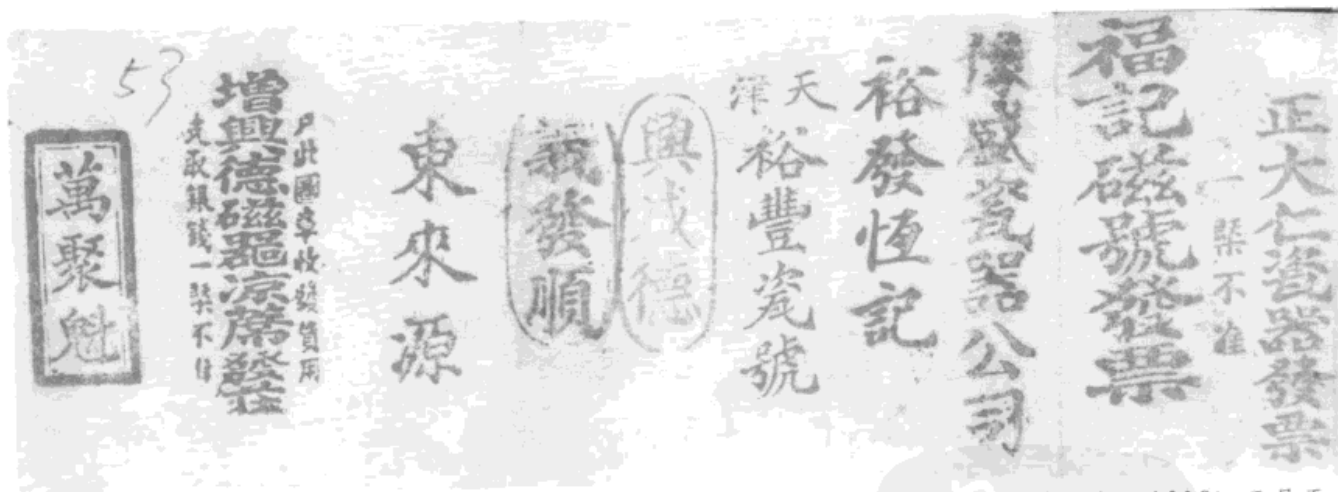 正大仁瓷器發票
一槩不准
福記磁號發票
隆盛瓷器公司
裕發恆記
天津
裕豐瓷號
興成德
義發順
東來源
戶此圖章收發貨用
增興德磁器凉蓆發莊
支取銀錢一槩不付
53
萬聚魁